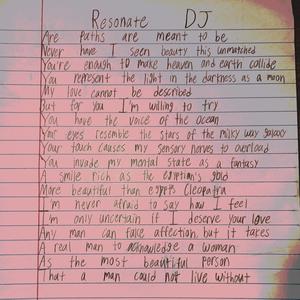 Resonate DJ
Are paths are meant to be
Never have I seen beauty this unmatched
You're enough to make heaven and earth collide
You represent the light in the darkness as a moon
My love cannot be described
But for you I'm willing to try
You have the voice of the ocean
Your eyes resemble the stars of the milky way galaxy
Your touch causes my sensory nerves to overload
You invade my mental state as a fantasy
A smile rich as the egiptian's gold
More beautiful than Cleopatra
I'm never afraid to say how I feel
I'm only uncertain if I deserve your love
Any man can fake affection but it takes
A real man to acknowledge a woman
As the most beautiful person
That a man could not live without